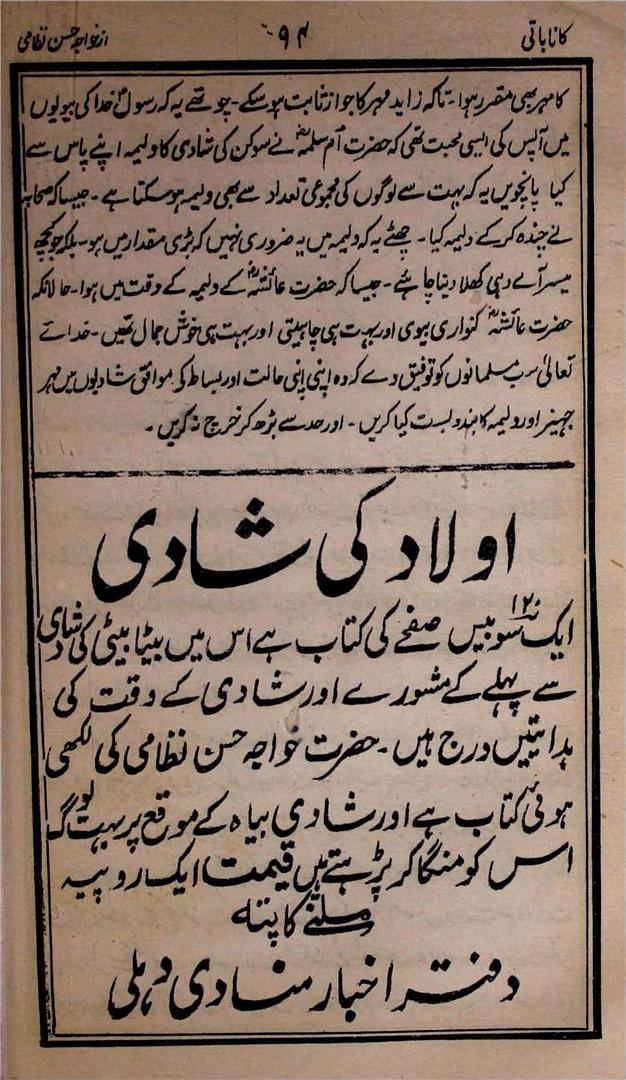 کانا باتی ۹۴ از خواجہ حسن نظامی
کا مہر بھی مقرر ہوا۔ تاکہ زاید مہر کا جواز ثابت ہو سکے۔ چوتھے یہ کہ رسولؐ خدا کی بیویوں
میں آپس کی ایسی محبت تھی کہ حضرت اُم سلمہؓ نے سوکن کی شادی کا ولیمہ اپنے پاس سے
کیا پانچویں یہ کہ بہت سے لوگوں کی مجموعی تعداد سے بھی ولیمہ ہو سکتا ہے۔ جیسا کہ صحابہ
نے چندہ کر کے ولیمہ کیا۔ چھٹے یہ کہ ولیمہ میں یہ ضروری نہیں کہ بڑی مقدار میں ہو۔ بلکہ جو کچھ
میسر آئے وہی کھلا دینا چاہئے۔ جیسا کہ حضرت عائشہؓ کے ولیمہ کے وقت میں ہوا۔ حالانکہ
حضرت عائشہؓ کنواری بیوی اور بہت ہی چاہیتی اور بہت ہی خوش جمال تھیں۔ خدائے
تعالیٰ سب مسلمانوں کو توفیق دے کہ وہ اپنی اپنی حالت اور بساط کی موافق شادیوں میں مہر
جہیز اور ولیمہ کا بندوبست کیا کریں۔ اور حد سے بڑھ کر خرچ نہ کریں۔
اولاد کی شادی
ایک سو بیس ۱۲۰ صفحے کی کتاب ہے اس میں بیٹا بیٹی کی شادی
سے پہلے کے مشورے اور شادی کے وقت کی
ہدایتیں درج ہیں۔ حضرت خواجہ حسن نظامی کی لکھی
ہوئی کتاب ہے اور شادی بیاہ کے موقع پر بہت لوگ
اس کو منگا کر پڑہتے ہیں قیمت ایک روپیہ
ملنے کا پتہ
دفتر اخبار منادی دہلی